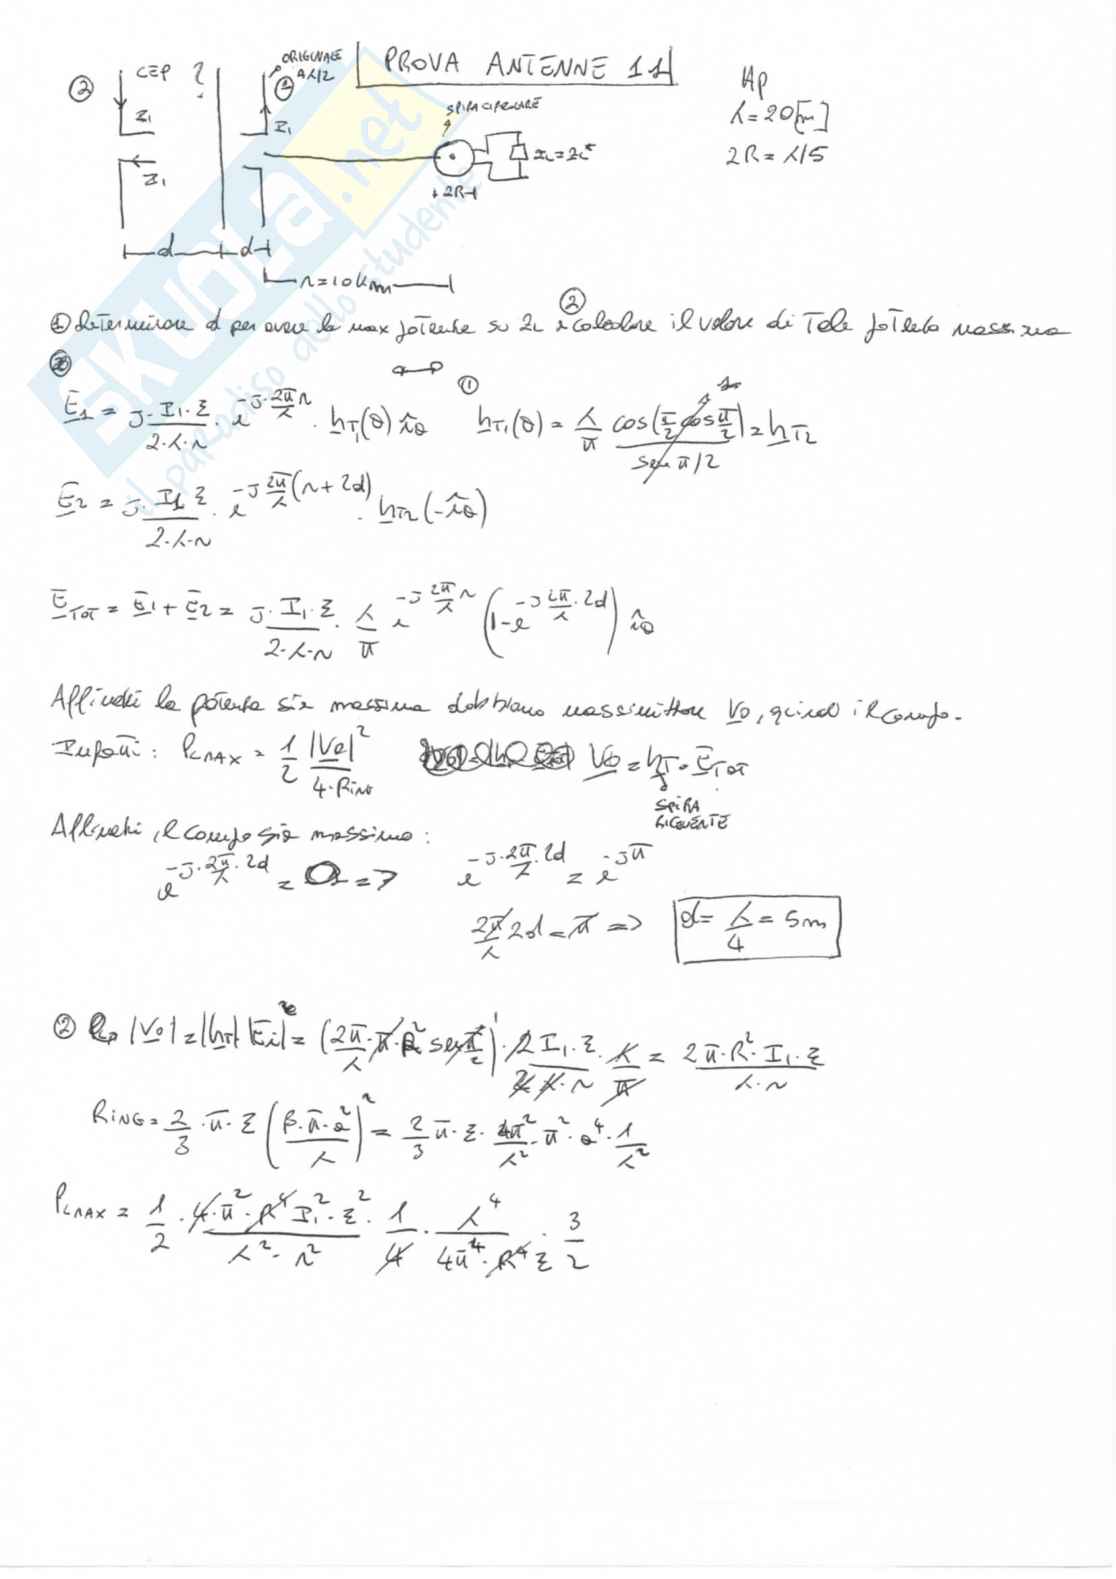 PROVA ANTENNE 11
② CEP ? ORIGINALE A λ/2 ①
I₁ I₁ SPIRA CIRCOLARE
I₁ ZL=ZC*
2R
d d
r=10Km
Hp
λ=20[m]
2R=λ/5
① determinare d per avere la max potenza su ZL ② e calcolare il valore di tale potenza massima
①
E₁ = j·I₁·ξ/(2·λ·r) · e^(-j·2π/λ r) · hT₁(θ) îθ hT₁(θ) = λ/π cos(π/2 cos π/2)/(sen π/2) = hT₂
E₂ = j·I₁ ξ/(2·λ·r) · e^(-j 2π/λ (r+2d)) · hT₂(-îθ)
E_TOT = E₁+E₂ = j·I₁·ξ/(2·λ·r) · λ/π e^(-j 2π/λ r) (1-e^(-j 2π/λ·2d)) îθ
Affinchè la potenza sia massima dobbiamo massimizzare V₀, quindi il campo.
Infatti: P_LMAX = 1/2 |V₀|²/(4·RinG) V₀ = hT · E_TOT
SPIRA
RICEVENTE
Affinchè il campo sia massimo:
e^(-j·2π/λ·2d) = => e^(-j·2π/λ·2d) = e^(-jπ)
2π/λ 2d = π => d = λ/4 = 5m
② |V₀|=|hT| |Ei| = (2π/λ·π·R² sen π/2)·2 I₁·ξ/(2·λ·r)·λ/π = 2π·R²·I₁·ξ/(λ·r)
RinG = 2/3 ·π·ξ (β·π·a²/λ)² = 2/3 π·ξ· 4π²/λ²·π²·a⁴·1/λ²
P_LMAX = 1/2 · 4·π²·R⁴ I₁²·ξ²/(λ²·r²) · 1/4 · λ⁴/(4π⁴·R⁴ ξ) · 3/2
SKUOLA.net
il paradiso dello studente